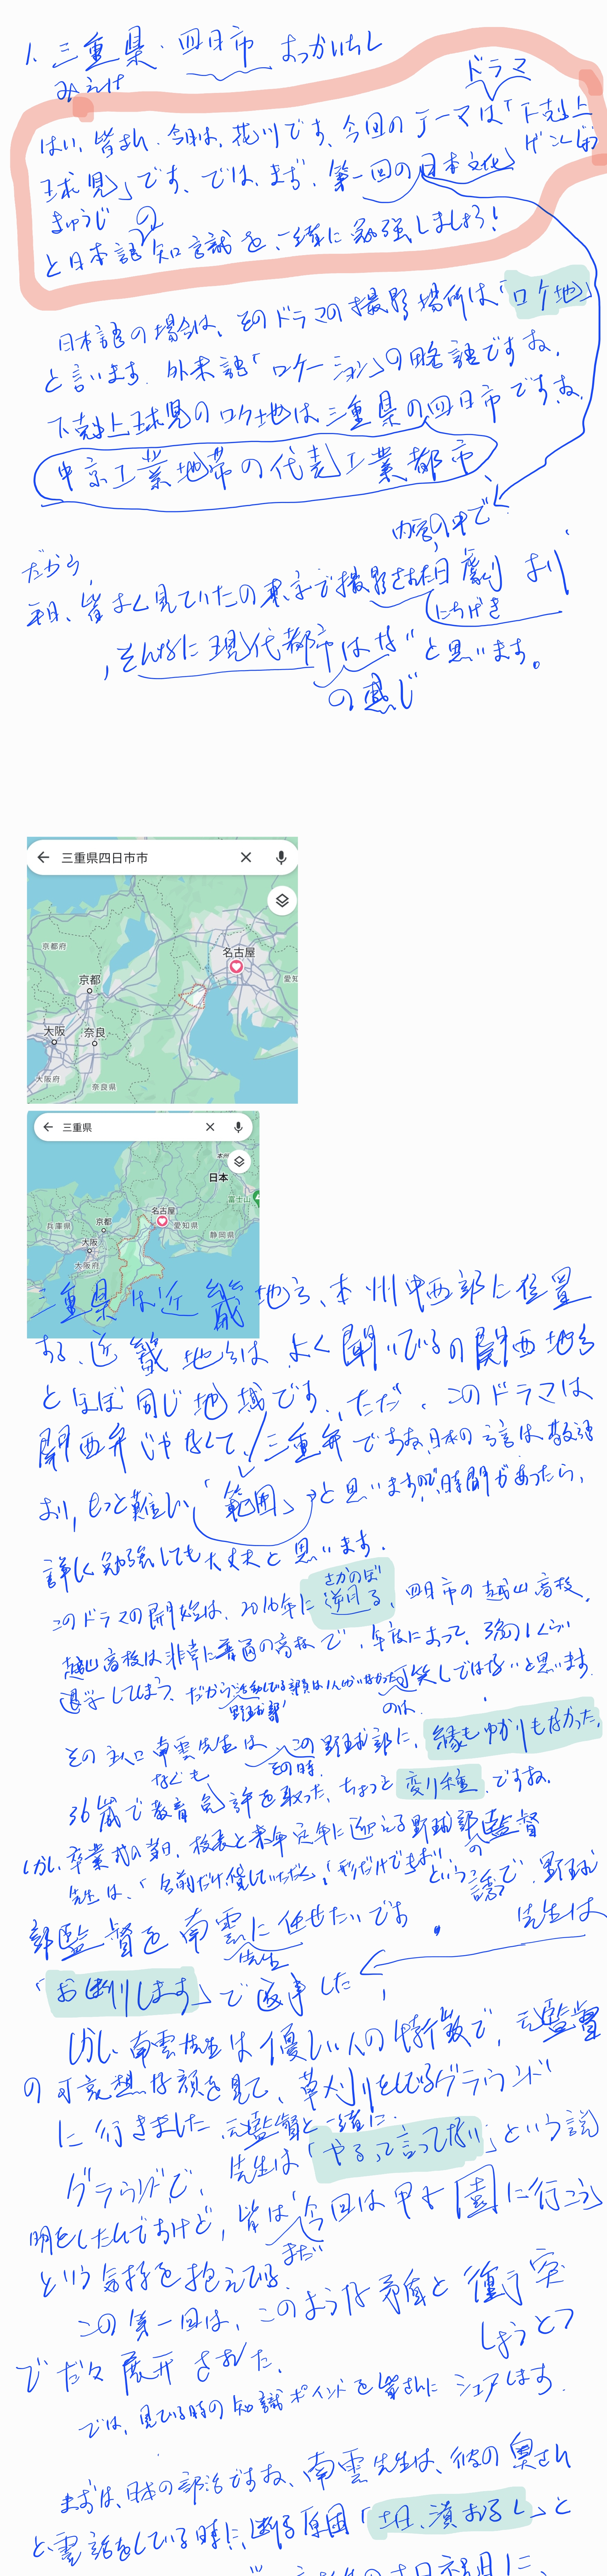 1. 三重県・四日市 よっかいちし
みえけ
ドラマ
はい、皆さん、今日は、花川です。今回のテーマは「下剋上
げこくじょう
球児」です。では、まず、第一回の日本文化
きゅうじ
と日本語の知識を一緒に勉強しましょう!
日本語の場合は、そのドラマの撮影場所は「ロケ地」
と言います。外来語「ロケーション」の略語ですね。
下剋上球児のロケ地は三重県の四日市ですね。
中京工業地帯の代表工業都市
内容の中で
だから、
平日、皆よく見ていたの東京で撮影された日劇より
にちげき
、そんなに現代都市はないと思います。
の感じ
三重県四日市市
京都府
名古屋
愛知
京都
大阪
奈良
大阪府
奈良県
三重県
本州
日本
富士山
兵庫県
京都
名古屋
愛知県
静岡県
大阪
大阪府
三重県は近畿地方、本州中西部に位置
する。近畿地方は、よく聞いているの関西地方
とほぼ同じ地域です。ただ、このドラマは
関西弁じゃなくて、三重弁ですね。日本の方言は敬語
より、もっと難しい「範囲」と思いますので、時間があったら、
詳しく勉強しても大丈夫と思います。
さかのぼ
このドラマの開始は、2016年に遡る、四日市の越山高校。
越山高校は非常に普通の高校で、年度によって、3分の1くらい
退学してしまう、だから活動している部員は1人しかいなかった可笑しではないと思います。
野球部
のは、
その主人口南雲先生は この野球部に、縁もゆかりもなかった。
なぐも
その時、
36歳で教育免許を取った、ちょっと変り種ですね。
しかし、卒業式の当日、校長と来年定年に迎える野球部の監督
先生は、「名前だけ貸していただく」「形だけでもよい」という誘で、野球
部監督を南雲に任せたいです。
先生
先生は
「お断りします」で返事した
しかし、南雲先生は優しい人の特徴で、元監督
の可哀想な顔を見て、草刈りをしてるグラウンド
に行きました、元監督と一緒に。
グラウンドで、先生は「やるって言ってない」という説
明をしたんですけど、皆は「今回は甲子園に行こう」
まだ
という気持を抱えてる。
この第一回は、このような矛盾と衝突
しょうとつ
でだんだん展開された。
では、見ている時の知識ポイントを皆さんにシェアします。
まずは、日本の部活ですね、南雲先生は、彼の奥さん
と電話をしている時に、断る原因「土日、潰れるし」と